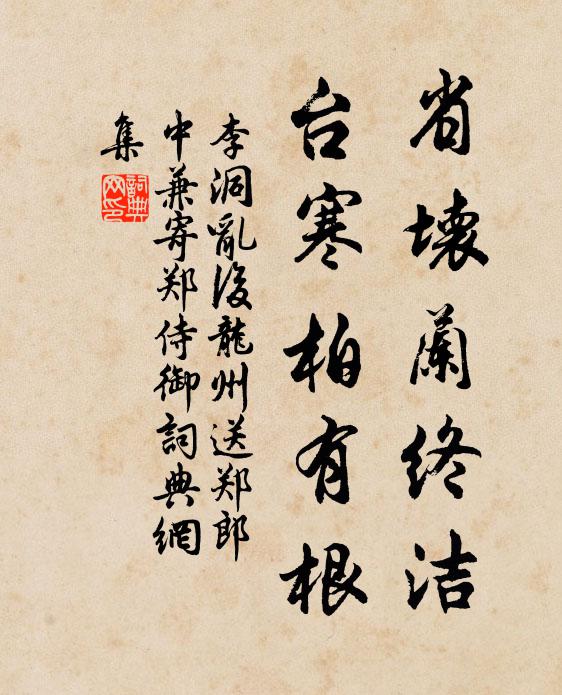 省壊蘭终洁
台寒柏有根
李洞亂後龍州送郑郎
中兼寄郑侍御詞典網
集
詞典
网印